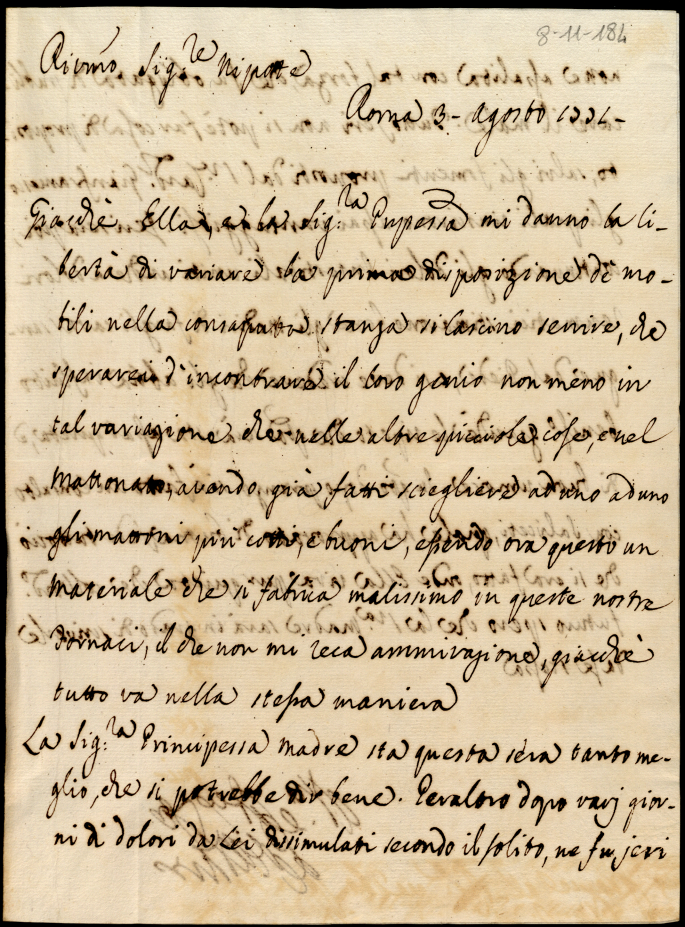 8-11-184
Rivmo. Sig.re Nipote
Roma 3- Agosto 1771-
Giacchè Ella, e la Sig.ra Pnpessa mi danno la li-
bertà di variare la prima disposizione de mo-
bili nella consaputa stanza si lascino servire, che
sperarei d'incontrare il loro genio non meno in
tal variazione che nelle altre picciole cose, e nel
Mattonato, avendo già fatti sciegliere ad uno ad uno
gli mattoni più cotti, e buoni, essendo ora questo un
Materiale che si fabrica malissimo in queste nostre
Fornaci, il che non mi reca ammirazione, giacchè
tutto va nella stessa maniera
La Sig.ra Principessa Madre sta questa sera tanto me-
glio, che si potrebbe dir bene. Peraltro dopo varj gior-
ni di dolori da Lei dissimulati secondo il solito, ne fu jeri